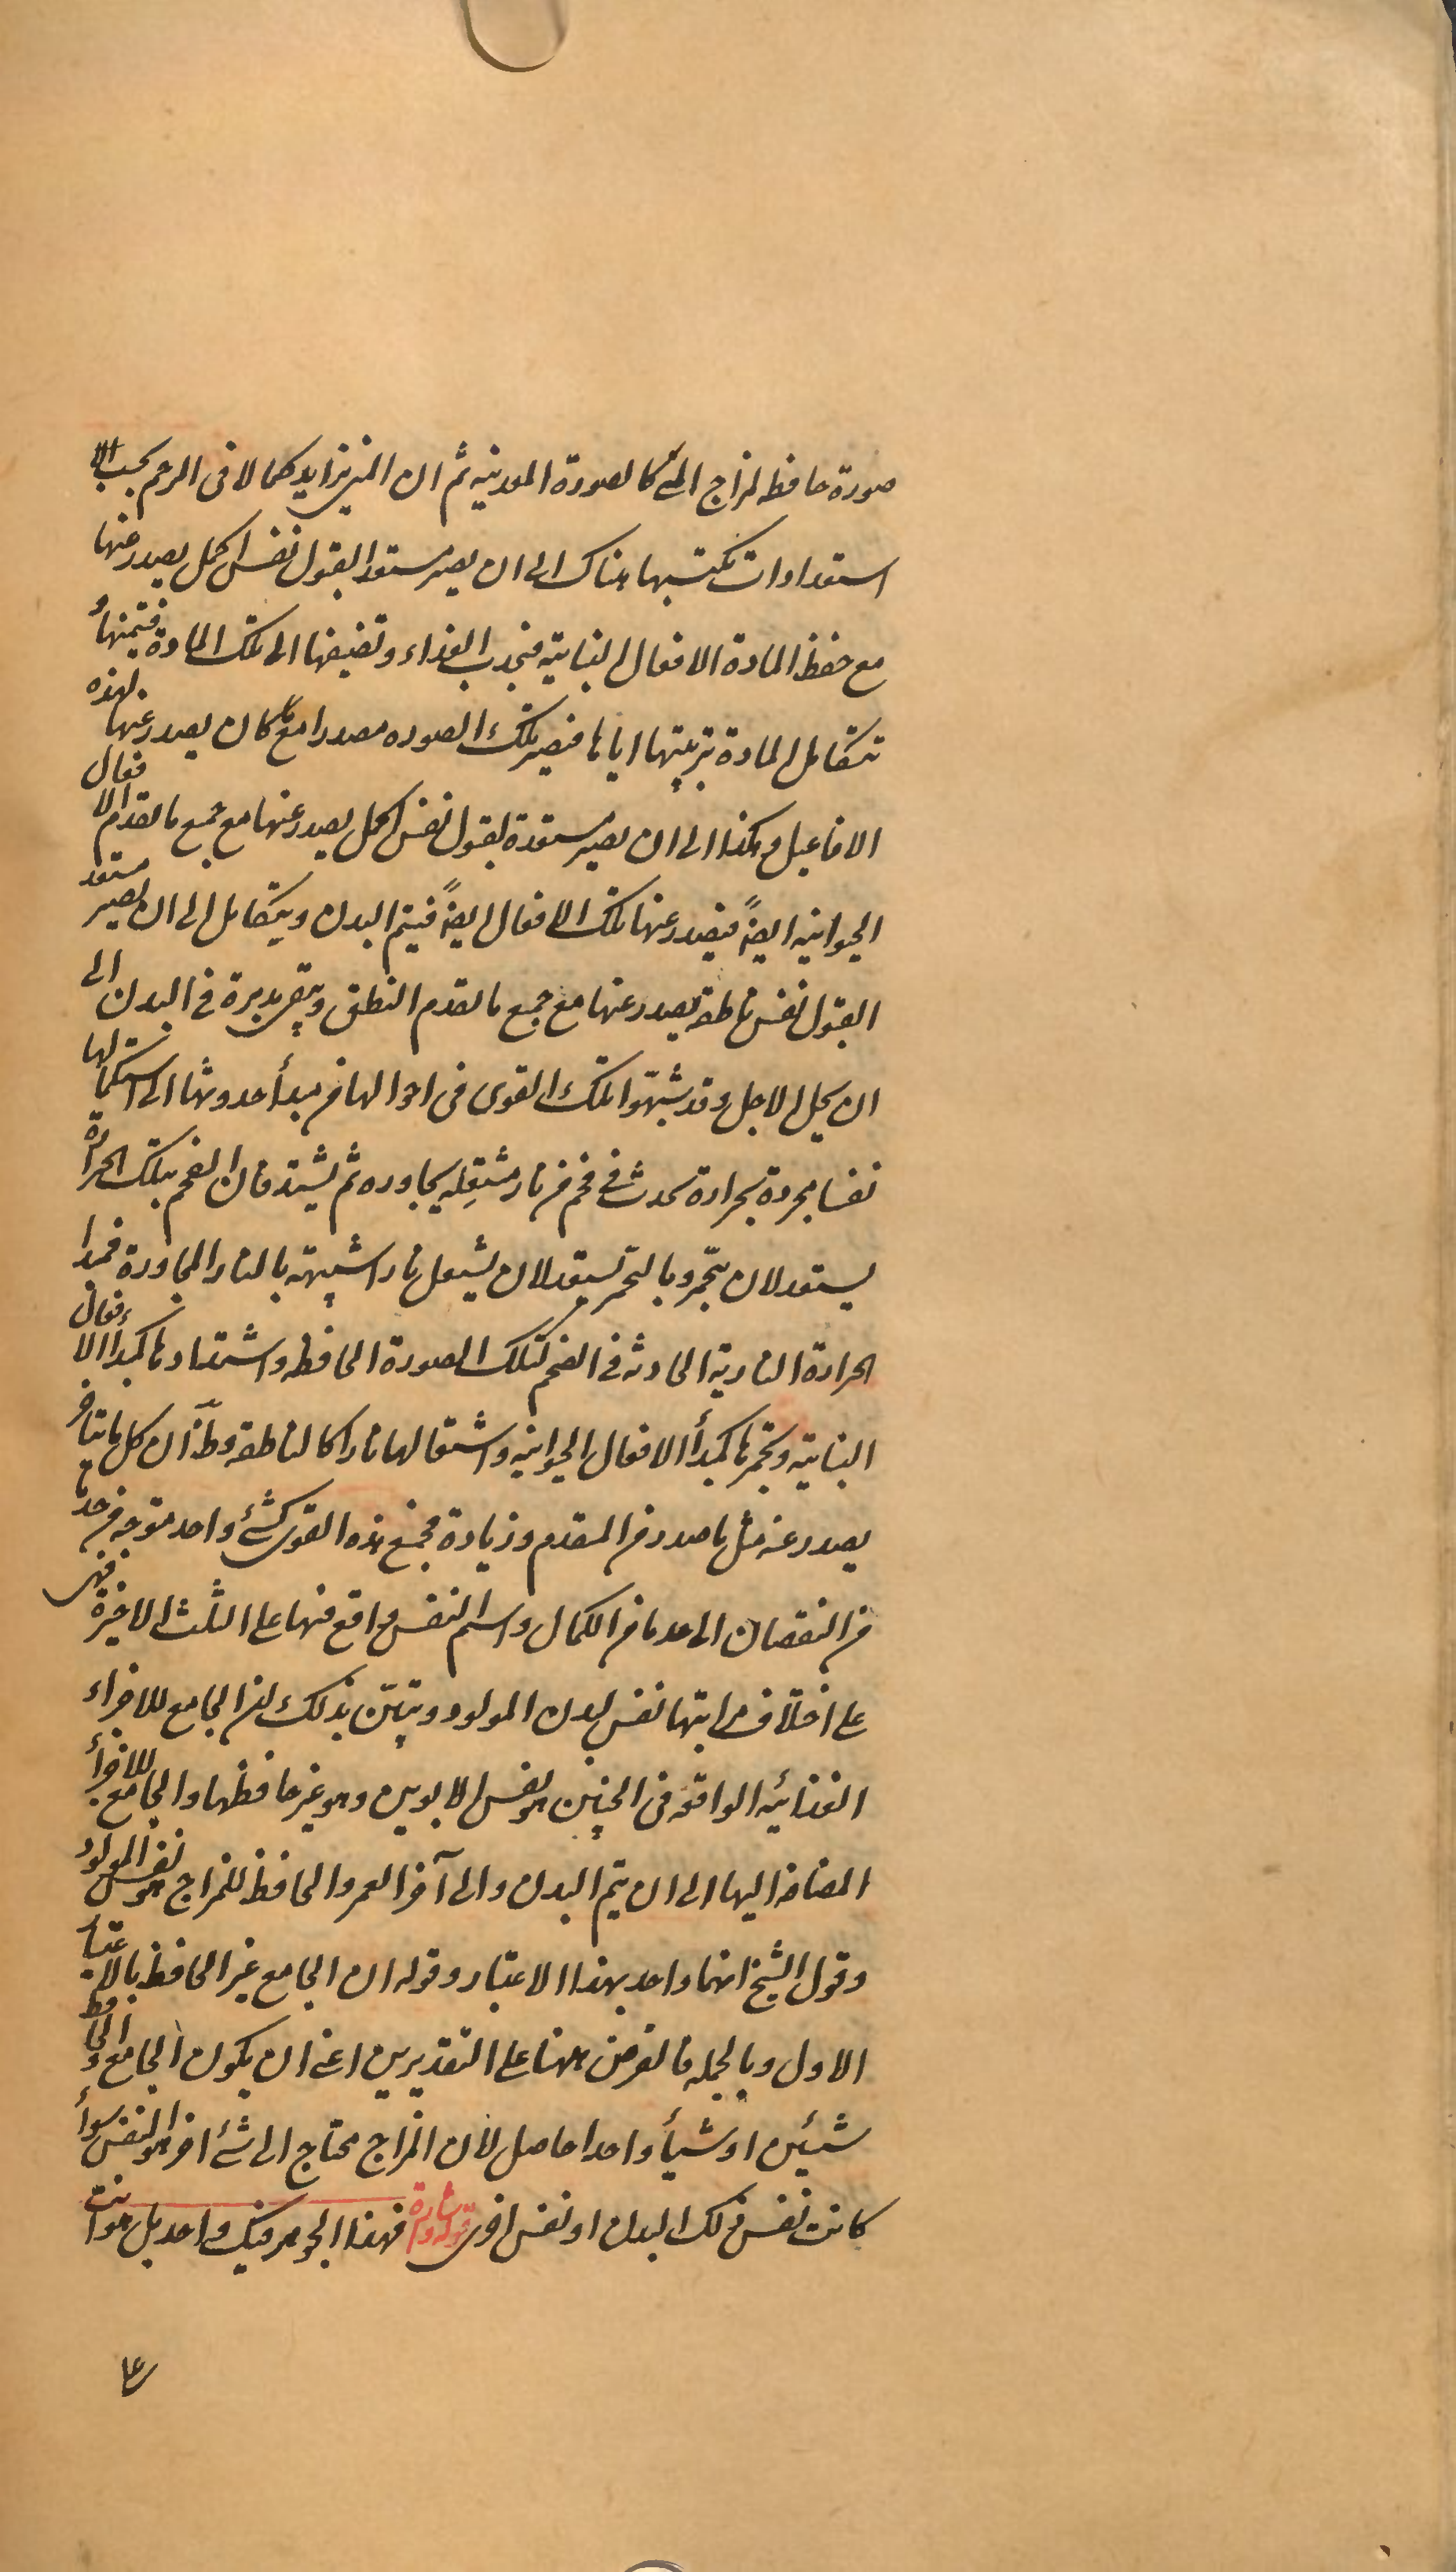 صورة حافظه لمزاج المنى كالصورة المعدنيه ثم ان المنى يتزايد كمالا فى الرحم بحسب
استعدادات تكتسبها هناك الى ان يصير مستعدا لقبول نفس اكمل يصدر عنها
مع حفظ المادة الافعال النباتيه فتجذب الغذاء وتضيفها الى تلك المادة فتنميها و
تتكامل المادة بتربيتها اياها فتصير تلك الصوره مصدرا مع ما كان يصدر عنها لهذه
الافاعيل وهكذا الى ان يصير مستعدة لقبول نفس اكمل يصدر عنها مع جميع ما تقدم الافعال
الحيوانيه ايضاً فيصدر عنها تلك الافعال ايضاً فيتم البدن ويتكامل الى ان يصير مستعد
القبول نفس ناطقه يصدر عنها مع جميع ما تقدم النطق ويبقى مدبرة فى البدن الى
ان يحل الاجل وقد شبهوا تلك القوى فى احوالها من مبدأ حدوثها الى استكمالها
نفسا مجردة بحرارة تحدث فى فحم من نار مشتعله يجاوره ثم يشتد فان الفحم بتلك الحرارة
يستعد لان يتجمر وبالتجمر يستعد لان يشتعل نارا شبيهة بالنار المجاورة فمبدا
الحرارة الناريه الحادثه فى الفحم كتلك الصورة الحافظه واشتدادها كمبدا الافعال
النباتيه وتجمرها كمبدأ الافعال الحيوانيه واشتعالها نارا كالناطقه وظ ان كل ما يتاخر
يصدر عنه مثل ما صدر من المقدم وزيادة فجميع هذه القوى كشئ واحد متوجه من حد ما
من النقصان الى حد ما من الكمال واسم النفس واقع منها على الثلث الاخيرة فهى
على اختلاف مراتبها نفس لبدن المولود وتبين بذلك ان الجامع للاجزاء
الغذائيه الواقعه فى الجنين هو نفس الابوين وهو غير حافظها والجامع للاجزأ
المضافه اليها الى ان يتم البدن والى آخر العمر والحافظ للمزاج هو نفس المولود
وقول الشيخ انهما واحد بهذا الاعتبار وقوله ان الجامع غير الحافظ بالاعتبار
الاول وبالجمله فالغرض ههنا على التقديرين اعنى ان يكون الجامع والحافظ
شيئين او شيأ واحدا حاصل لان المزاج محتاج الى شئ اخر هو النفس سوأ
كانت نفس ذلك البدن او نفس اخرى قوله اشارة فهذا الجوهر فيك واحد بل هو انت